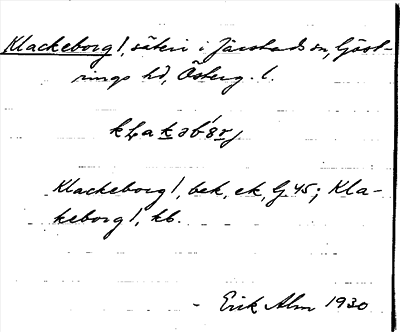 Klackeborg/, säteri i Järstads sn, Göst-
rings hd, Österg. l.
Klackeborg/, bek, ek, Gj 45; Kla-
keborg/, kb.
Erik Alm 1930